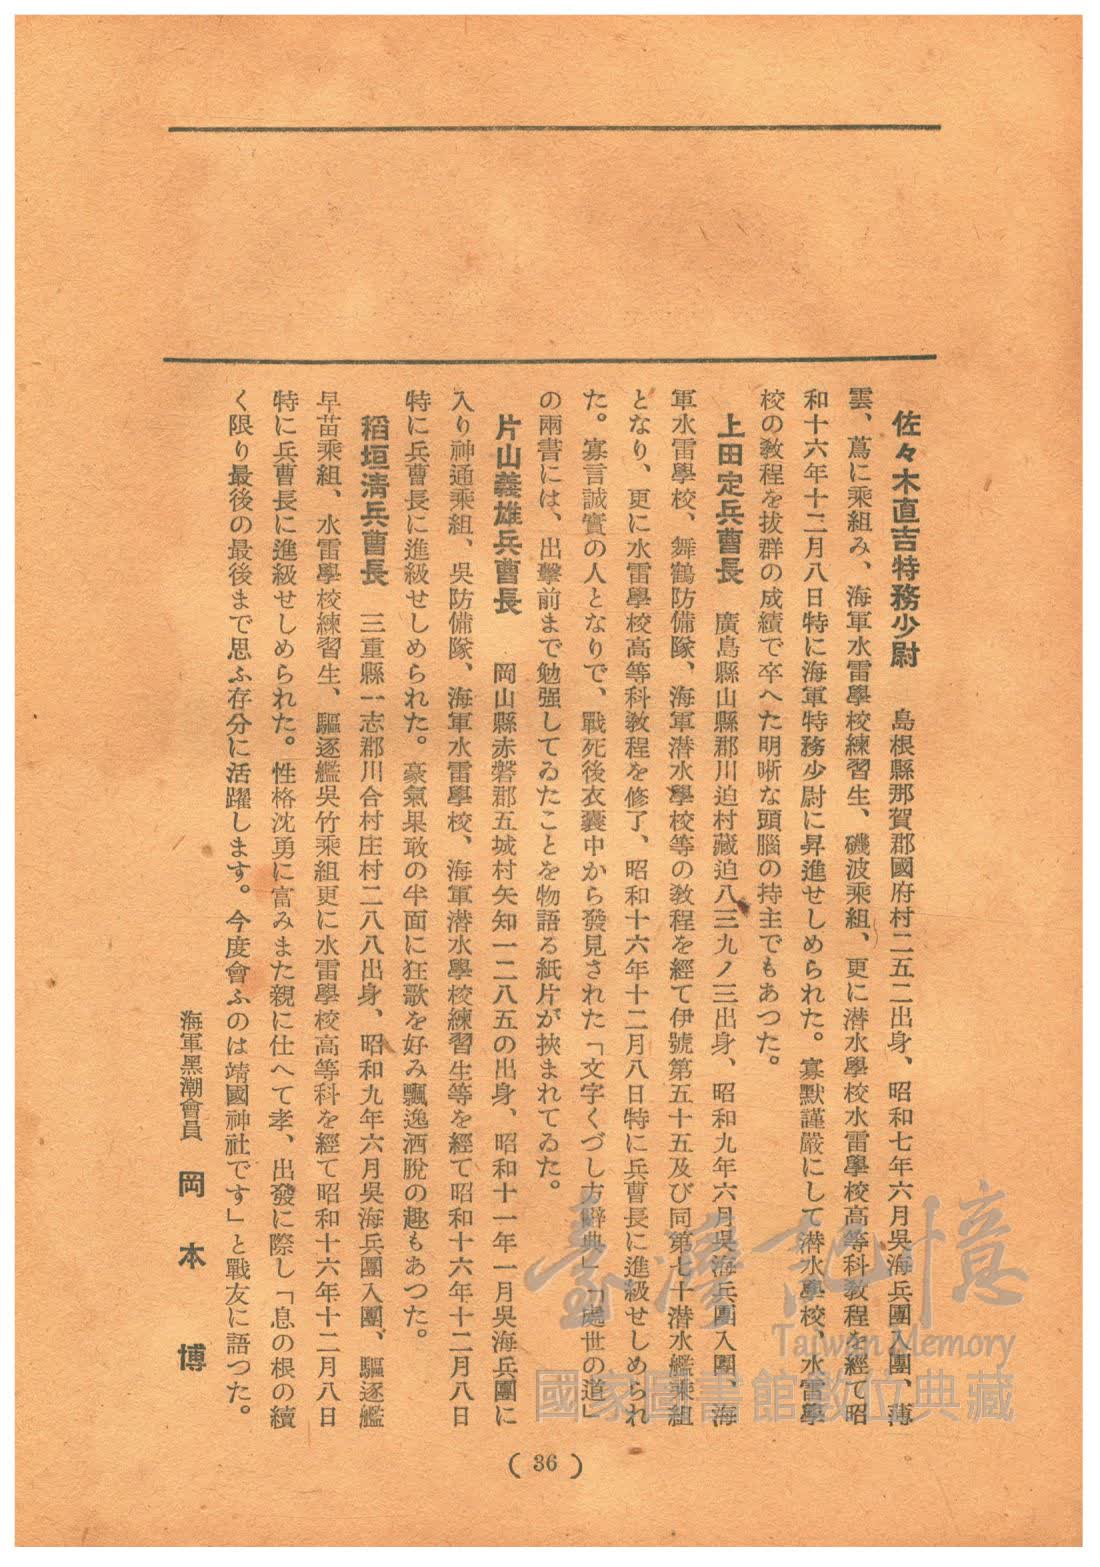 佐々木直吉特務少尉　島根縣那賀郡國府村二五二出身、昭和七年六月吳海兵團入團、薄
雲、蔦に乘組み、海軍水雷學校練習生、磯波乘組、更に潜水學校水雷學校高等科敎程を經て昭
和十六年十二月八日特に海軍特務少尉に昇進せしめられた。寡默謹嚴にして潜水學校、水雷學
校の敎程を拔群の成績で卒へた明晰な頭腦の持主でもあつた。
上田定兵曹長　廣島縣山縣郡川迫村藏迫八三九ノ三出身、昭和九年六月吳海兵團入團、海
軍水雷學校、舞鶴防備隊、海軍潜水學校等の敎程を經て伊號第五十五及び同第七十潜水艦乘組
となり、更に水雷學校高等科敎程を修了、昭和十六年十二月八日特に兵曹長に進級せしめられ
た。寡言誠實の人となりで、戰死後衣囊中から發見された「文字くづし方辭典」「處世の道」
の兩書には、出擊前まで勉强してゐたことを物語る紙片が挾まれてゐた。
片山義雄兵曹長　岡山縣赤磐郡五城村矢知一二八五の出身、昭和十一年一月吳海兵團に
入り神通乘組、吳防備隊、海軍水雷學校、海軍潜水學校練習生等を經て昭和十六年十二月八日
特に兵曹長に進級せしめられた。豪氣果敢の半面に狂歌を好み飄逸洒脫の趣もあつた。
稻垣淸兵曹長　三重縣一志郡川合村庄村二八八出身、昭和九年六月吳海兵團入團、驅逐艦
早苗乘組、水雷學校練習生、驅逐艦吳竹乘組更に水雷學校高等科を經て昭和十六年十二月八日
特に兵曹長に進級せしめられた。性格沈勇に富みまた親に仕へて孝、出發に際し「息の根の續
く限り最後の最後まで思ふ存分に活躍します。今度會ふのは靖國神社です」と戰友に語つた。
海軍黑潮會員　岡本博
( 36 )
臺灣記憶
Taiwan Memory
國家圖書館數位典藏